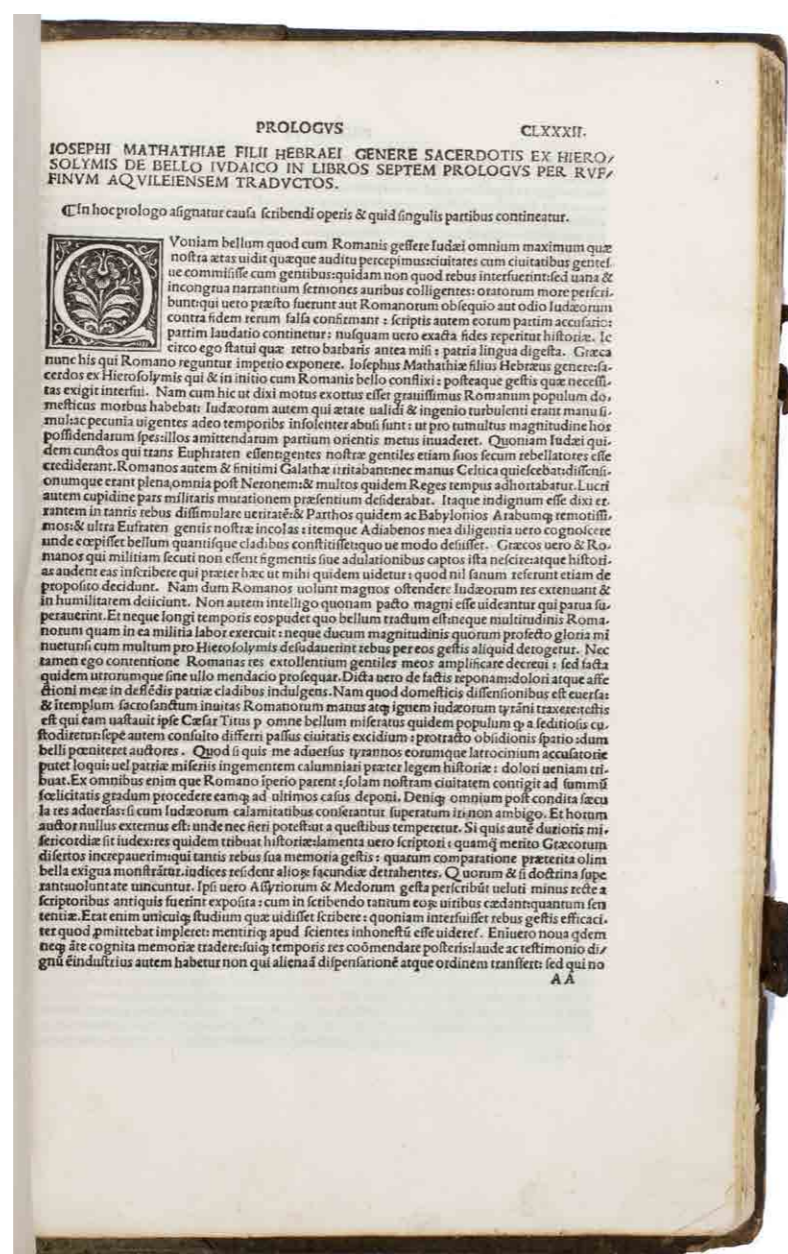 PROLOGVS CLXXXII.
IOSEPHI MATHATHIAE FILII HEBRAEI GENERE SACERDOTIS EX HIERO/
SOLYMIS DE BELLO IVDAICO IN LIBROS SEPTEM PROLOGVS PER RVF/
FINVM AQVILEIENSEM TRADVCTOS.
⁋In hoc prologo asignatur causa scribendi operis & quid singulis partibus contineatur.
QVoniam bellum quod cum Romanis gessere Iudæi omnium maximum quæ
nostra ætas uidit quæque auditu percepimus:ciuitates cum ciuitatibus gentes
ue commisisse cum gentibus:quidam non quod rebus interfuerint:sed uana &
incongrua narrantium sermones auribus colligentes: oratorum more perscri-
bunt:qui uero præsto fuerunt aut Romanorum obsequio aut odio Iudæorum
contra fidem rerum falsa confirmant : scriptis autem eorum partim accusatio:
partim laudatio continetur: nusquam uero exacta fides reperitur historiæ. Ic
circo ego statui quæ retro barbaris antea misi : patria lingua digesta. Græca
nunc his qui Romano reguntur imperio exponere. Iosephus Mathathiæ filius Hebræus genere:sa-
cerdos ex Hierosolymis qui & in initio cum Romanis bello conflixi : posteaque gestis quæ necessi-
tas exigit interfui. Nam cum hic ut dixi motus exortus esset grauissimus Romanum populum do-
mesticus morbus habebat: Iudæorum autem qui ætate ualidi & ingenio turbulenti erant manu si-
mul:ac pecunia uigentes adeo temporibs insolenter abusi sunt: ut pro tumultus magnitudine hos
possidendarum spes:illos amittendarum partium orientis metus inuaderet. Quoniam Iudæi qui-
dem cunctos qui trans Euphraten essent:gentes nostræ gentiles etiam suos secum rebellatores esse
crediderant.Romanos autem & finitimi Galathæ irritabant:nec manus Celtica quiescebat:dissensi-
onumque erant plena,omnia post Neronem:& multos quidem Reges tempus adhortabatur. Lucri
autem cupidine pars militaris mutationem præsentium desiderabat. Itaque indignum esse dixi er-
rantem in tantis rebus dissimulare ueritatē:& Parthos quidem ac Babylonios Arabumq; remotissi-
mos:& ultra Eufraten gentis nostræ incolas : itemque Adiabenos mea diligentia uero cognoscere
unde cœpisset bellum quantisque cladibus constitisset:quo ue modo desuisset. Græcos uero & Ro-
manos qui militiam secuti non essent figmentis siue adulationibus captos ista nescire:atque histori-
as audent eas inscribere qui præter hæc ut mihi quidem uidetur : quod nil sanum referunt etiam de
proposito decidunt. Nam dum Romanos uolunt magnos ostendere Iudæorum res extenuant &
in humilitatem deiiciunt. Non autem intelligo quonam pacto magni esse uideantur qui parua su-
perauerint.Et neque longi temporis eos pudet quo bellum tractum est:neque multitudinis Roma-
norum quam in ea militia labor exercuit : neque ducum magnitudinis quorum profecto gloria mi
nuetur:si cum multum pro Hierosolymis desudauerint rebus per eos gestis aliquid derogetur. Nec
tamen ego contentione Romanas res extollentium gentiles meos amplificare decreui : sed facta
quidem utrorumque sine ullo mendacio prosequar.Dicta uero de factis reponam:dolori atque affe
ctioni meæ in deflēdis patriæ cladibus indulgens.Nam quod domesticis dissensionibus est euersa:
& ītemplum sacrosanctum inuitas Romanorum manus atq; ignem iudæorum tyrāni traxere:testis
est qui eam uastauit ipse Cæsar Titus p omne bellum miseratus quidem populum q a seditiosis cu-
stodiretur:sepē autem consulto differri passus ciuitatis excidium : protracto obsidionis spatio :dum
belli pœniteret auctores . Quod si quis me aduersus tyrannos eorumque latrocinium accusatorie
putet loqui: uel patriæ miseriis ingementem calumniari præter legem historiæ : dolori ueniam tri-
buat.Ex omnibus enim que Romano īperio parent : solam nostram ciuitatem contigit ad summū
fœlicitatis gradum procedere eamq; ad ultimos casus deponi. Deniq; omnium post condita sæcu
la res aduersas: si cum Iudæorum calamitatibus conferantur superatum iri non ambigo. Et horum
auctor nullus externus est: unde nec fieri potest:ut a questibus temperetur. Si quis autē durioris mi-
sericordiæ sit iudex:res quidem tribuat historiæ:lamenta uero scriptori : quamq̄ merito Græcorum
disertos increpauerim:qui tantis rebus sua memoria gestis : quarum comparatione præterita olim
bella exigua monstrātur.iudices resident alioꝝ facundiæ detrahentes. Quorum & si doctrina supe
rant:uoluntate uincuntur. Ipsi uero Assyriorum & Medorum gesta perscribūt ueluti minus recte a
scriptoribus antiquis fuerint exposita : cum in scribendo tantum eoꝝ uiribus cædant:quantum sen
tentiæ.Erat enim unicuiq; studium quæ uidisset scribere : quoniam interfuisset rebus gestis efficaci-
ter quod ꝓmittebat impleret: mentiriq; apud scientes inhonestū esse uideret. Eniuero noua qdem
neq; āte cognita memoriæ tradere:suiq; temporis res coōmendare posteris:laude ac testimonio di/
gnū ē:industrius autem habetur non qui alienaā dispensationē atque ordinem transfert: sed qui no
AA